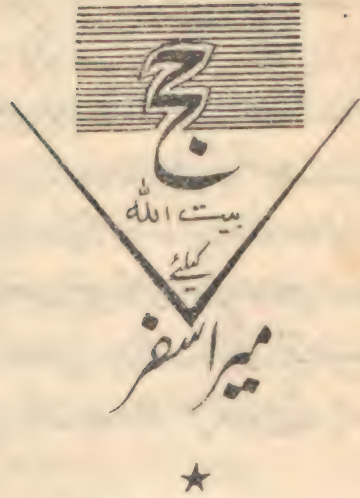 حج
بیت اللہ
کیلئے
میرا سفر